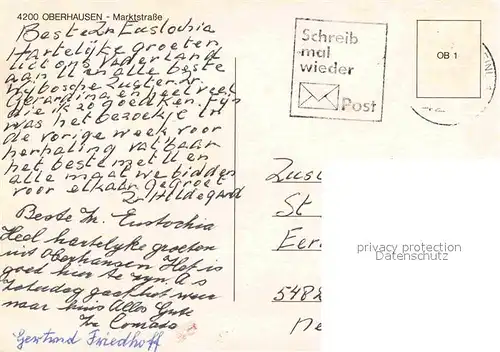 4200 OBERHAUSEN - Marktstraße
Beste Zr Euslochia
Hartelyke groeten
uit ons Vaderland
aan U en alle beste
Gerardina en heel veel
die ik zo goed ken. Fyn
was het bezoekje in
de vorige week voor
herhaling vatbaar
het beste met U en
alle maat we bidden
voor elkaar gegroet
Zr Hildegard
Beste Zr. Eustochia
Heel hartelyke groeten
uit Oberhausen Het is
goed hier te zyn. A s
Zaterdag gaat het weer
naar huis Alles Gute
Zr
Gertrud Friedhoff
Schreib
mal
wieder
Post
OB 1
St
548
privacy protection
Datenschutz